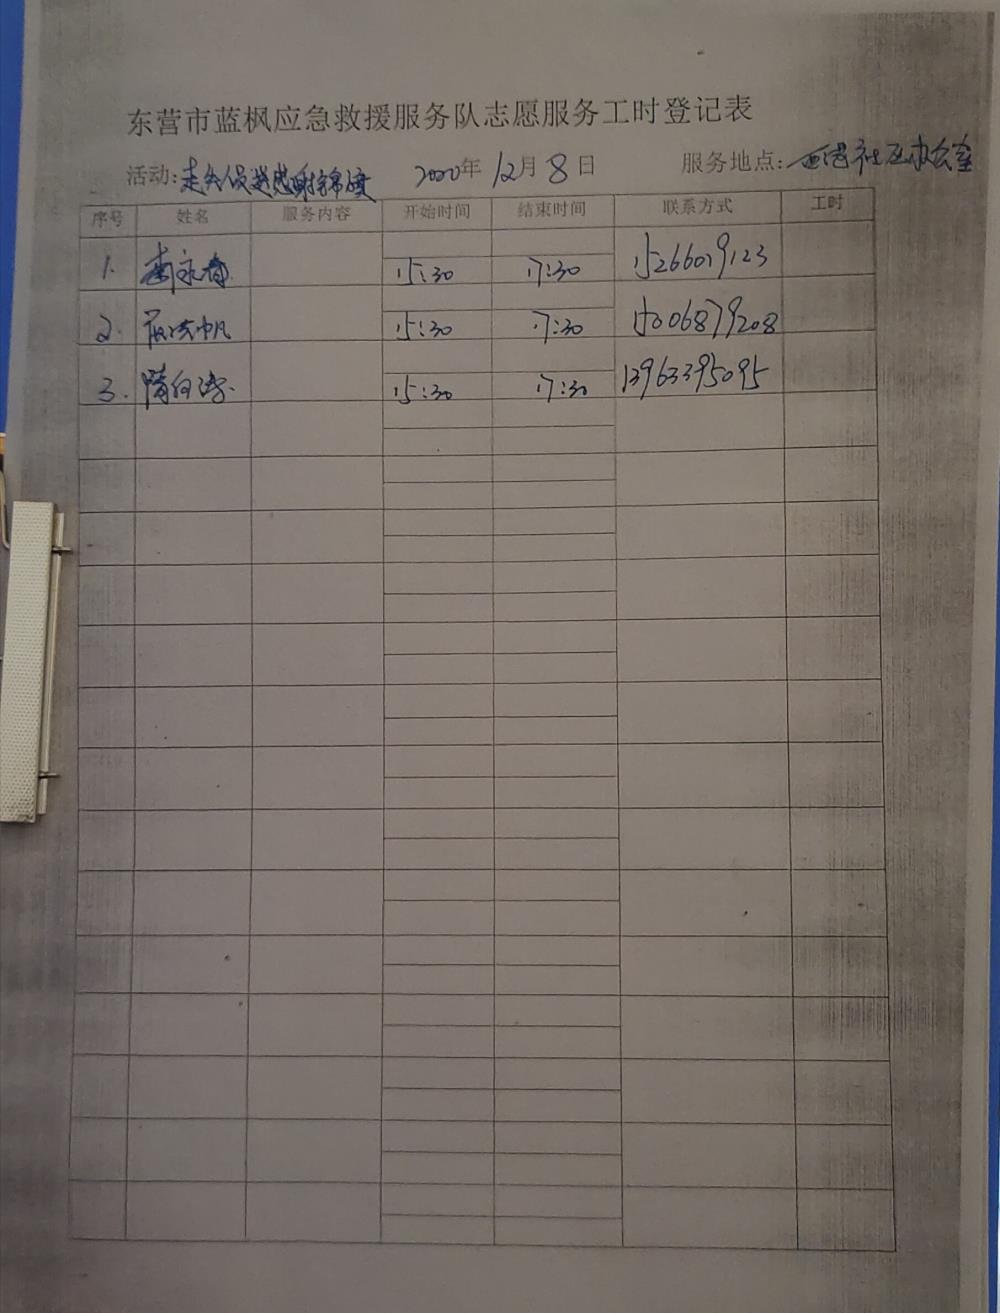 东营市蓝枫应急救援服务队志愿服务工时登记表
活动:走失人员送感谢锦旗 2020年12月8日 服务地点:西港社区办公室
序号 姓名 服务内容 开始时间 结束时间 联系方式 工时
1. 李永春 15:30 17:30 15266019123
2. 15:30 17:30 15006879208
3. 隋向涛 15:30 17:30 13963395095